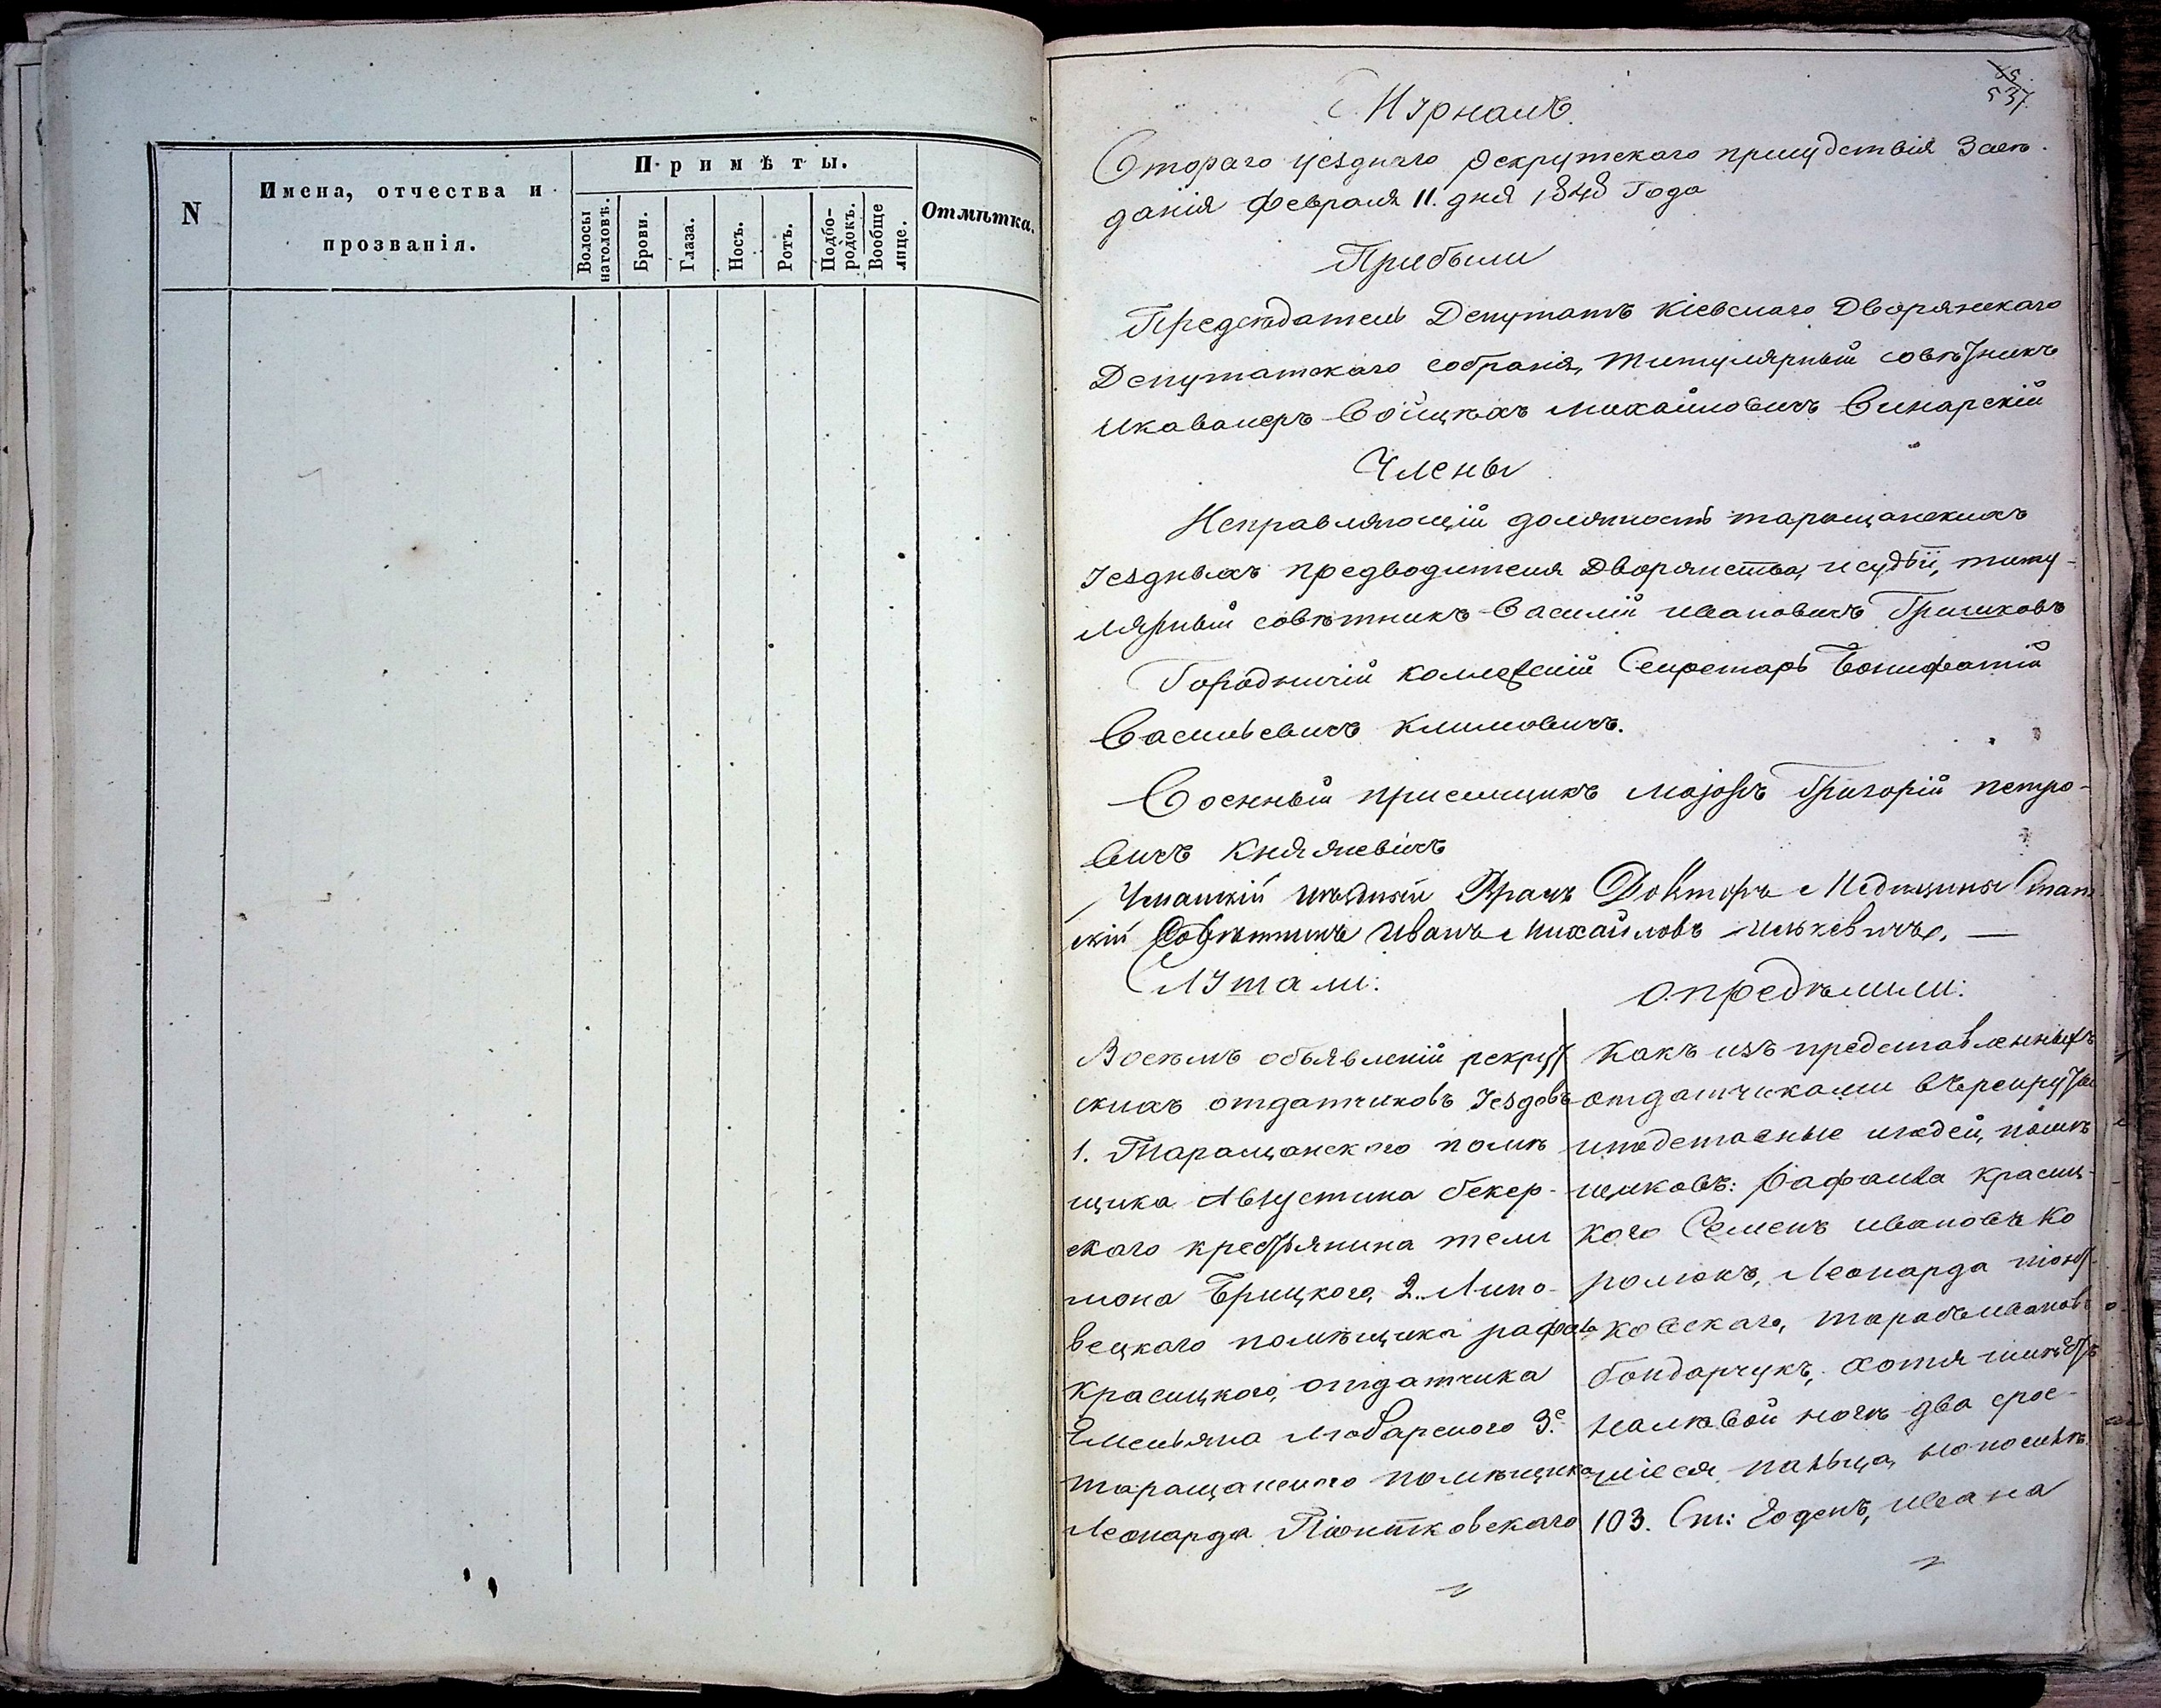 N
Имена, отчества и
прозванія.
Примѣты.
Волосы
наголовѣ.
Брови.
Глаза.
Носъ.
Ротъ.
Подбо-
родокъ.
Вообще
лице.
Отмѣтка.
65
537
Журналъ
Втораго уезднаго рекрутскаго присудствія Засѣ-
данія Февраля 11. дня 1848 Года
Прибыли
Предсѣдатель Депутатъ Кіевскаго Дворянскаго
Депутатскаго собранія, титулярный совѣтникъ
икавалеръ Войцѣхъ Михайловичъ Винарскій
Члены
Исправляющій должность таращанскихъ
уездныхъ предводителя Дворянства, исудьи, титу-
лярный совѣтникъ Василій Ивановичъ Гришковъ
Городничій коллежскій Секретарь Бонифатій
Васильевичъ Климовичъ.
Военный приемщикъ Маjоръ Григорій петро-
вичъ Княжевичъ
Уманскій уѣздный Врачъ Докторъ Медицины Стат
скій Совѣтникъ Иванъ Михайловъ Илькевичъ. —
Слушали:
Восѣмъ объявленій рекрут
скихъ отдатчиковъ уездовъ
1. Таращанского помѣ
щика Августина бекер-
ского крестьянина тели
мона Брицкого, 2. Липо-
вецкаго помѣщика рафаела
Красицкого, отдатчика
Емельяна Любарского 3.е
таращанского помѣщика
Леонарда Піонтковскаго
опредѣлили:
Какъ изъ представленныхъ
отдатчиками врекруты
иподставные людей, помѣ
щиковъ: Рафаила Красиц-
кого Семенъ ивановъ Ко
ролюкъ, Леонарда піонт-
ковскаго, тарасъ ивановъ
бондарчукъ, хотя имѣетъ
налѣвой ногѣ два срос-
шіеся пальца, но посилѣ
103. Ст: Годенъ, ивана